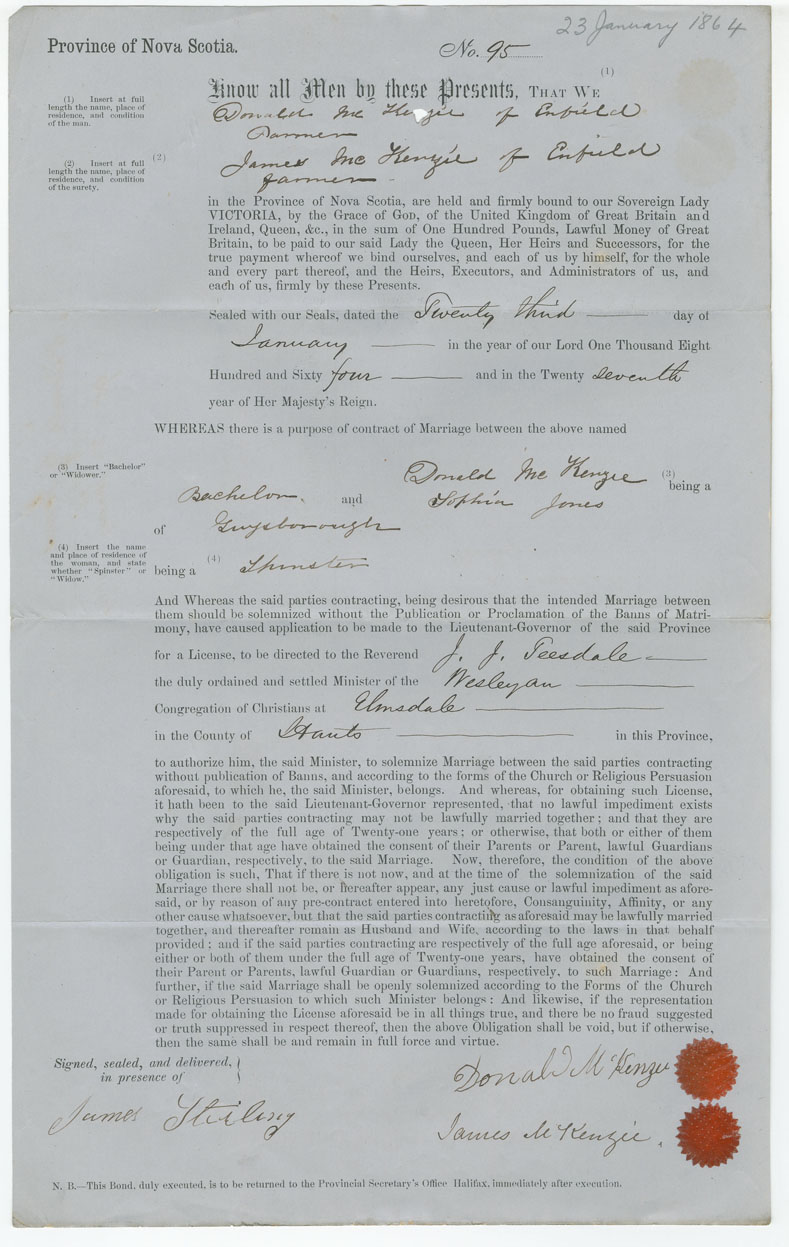 23 January 1864
Province of Nova Scotia.
No. 95
(1)
Know all Men by these Presents, THAT WE
(1) Insert at full
length the name, place of
residence, and condition
of the man.
Donald McKenzie of Enfield
Farmer
(2) Insert at full
length the name, place of
residence, and condition
of the surety.
(2)
James McKenzie of Enfield
farmer
in the Province of Nova Scotia, are held and firmly bound to our Sovereign Lady
VICTORIA, by the Grace of GOD, of the United Kingdom of Great Britain and
Ireland, Queen, &c., in the sum of One Hundred Pounds, Lawful Money of Great
Britain, to be paid to our said Lady the Queen, Her Heirs and Successors, for the
true payment whereof we bind ourselves, and each of us by himself, for the whole
and every part thereof, and the Heirs, Executors, and Administrators of us, and
each of us, firmly by these Presents.
Sealed with our Seals, dated the Twenty third day of
January in the year of our Lord One Thousand Eight
Hundred and Sixty four and in the Twenty seventh
year of Her Majesty's Reign.
WHEREAS there is a purpose of contract of Marriage between the above named
(3) Insert "Bachelor"
or "Widower."
Donald McKenzie (3) being a
Bachelor. and Sophia Jones
of Guysborough
(4) Insert the name
and place of residence of
the woman, and state
whether "Spinster" or
"Widow."
being a (4) Spinster
And Whereas the said parties contracting, being desirous that the intended Marriage between
them should be solemnized without the Publication or Proclamation of the Banns of Matri-
mony, have caused application to be made to the Lieutenant-Governor of the said Province
for a License, to be directed to the Reverend J. J. Teesdale
the duly ordained and settled Minister of the Wesleyan
Congregation of Christians at Elmsdale
in the County of Hants in this Province,
to authorize him, the said Minister, to solemnize Marriage between the said parties contracting
without publication of Banns, and according to the forms of the Church or Religious Persuasion
aforesaid, to which he, the said Minister, belongs. And whereas, for obtaining such License,
it hath been to the said Lieutenant-Governor represented, that no lawful impediment exists
why the said parties contracting may not be lawfully married together; and that they are
respectively of the full age of Twenty-one years; or otherwise, that both or either of them
being under that age have obtained the consent of their Parents or Parent, lawful Guardians
or Guardian, respectively, to the said Marriage. Now, therefore, the condition of the above
obligation is such, That if there is not now, and at the time of the solemnization of the said
Marriage there shall not be, or hereafter appear, any just cause or lawful impediment as afore-
said, or by reason of any pre-contract entered into heretofore, Consanguinity, Affinity, or any
other cause whatsoever, but that the said parties contracting as aforesaid may be lawfully married
together, and thereafter remain as Husband and Wife, according to the laws in that behalf
provided; and if the said parties contracting are respectively of the full age aforesaid, or being
either or both of them under the full age of Twenty-one years, have obtained the consent of
their Parent or Parents, lawful Guardian or Guardians, respectively, to such Marriage: And
further, if the said Marriage shall be openly solemnized according to the Forms of the Church
or Religious Persuasion to which such Minister belongs: And likewise, if the representation
made for obtaining the License aforesaid be in all things true, and there be no fraud suggested
or truth suppressed in respect thereof, then the above Obligation shall be void, but if otherwise,
then the same shall be and remain in full force and virtue.
Signed, sealed, and delivered,
in presence of
Donald McKenzie
James Stirling
James McKenzie.
N. B.—This Bond, duly executed, is to be returned to the Provincial Secretary's Office Halifax, immediately after execution.